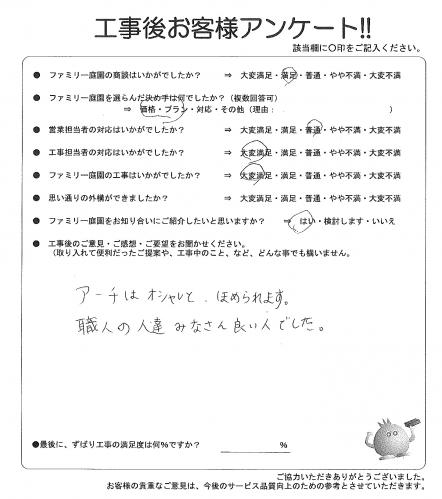 工事後お客様アンケート!!
該当欄に〇印をご記入ください。
● ファミリー庭園の商談はいかがでしたか? ⇒ 大変満足・満足・普通・やや不満・大変不満
● ファミリー庭園を選らんだ決め手は何でしたか?(複数回答可)
⇒ 価格・プラン・対応・その他(理由: )
● 営業担当者の対応はいかがでしたか? ⇒ 大変満足・満足・普通・やや不満・大変不満
● 工事担当者の対応はいかがでしたか? ⇒ 大変満足・満足・普通・やや不満・大変不満
● ファミリー庭園の工事はいかがでしたか? ⇒ 大変満足・満足・普通・やや不満・大変不満
● 思い通りの外構ができましたか? ⇒ 大変満足・満足・普通・やや不満・大変不満
● ファミリー庭園をお知り合いにご紹介したいと思いますか? ⇒ はい・検討します・いいえ
● 工事後のご意見・ご感想・ご要望をお聞かせください。
(取り入れて便利だったご提案や、工事中のこと、など、どんな事でも構いません。
アーチはオシャレと、ほめられます。
職人の人達みなさん良い人でした。
●最後に、ずばり工事の満足度は何%ですか? %
ご協力いただきありがとうございました。
お客様の貴重なご意見は、今後のサービス品質向上のための参考とさせていただきます。